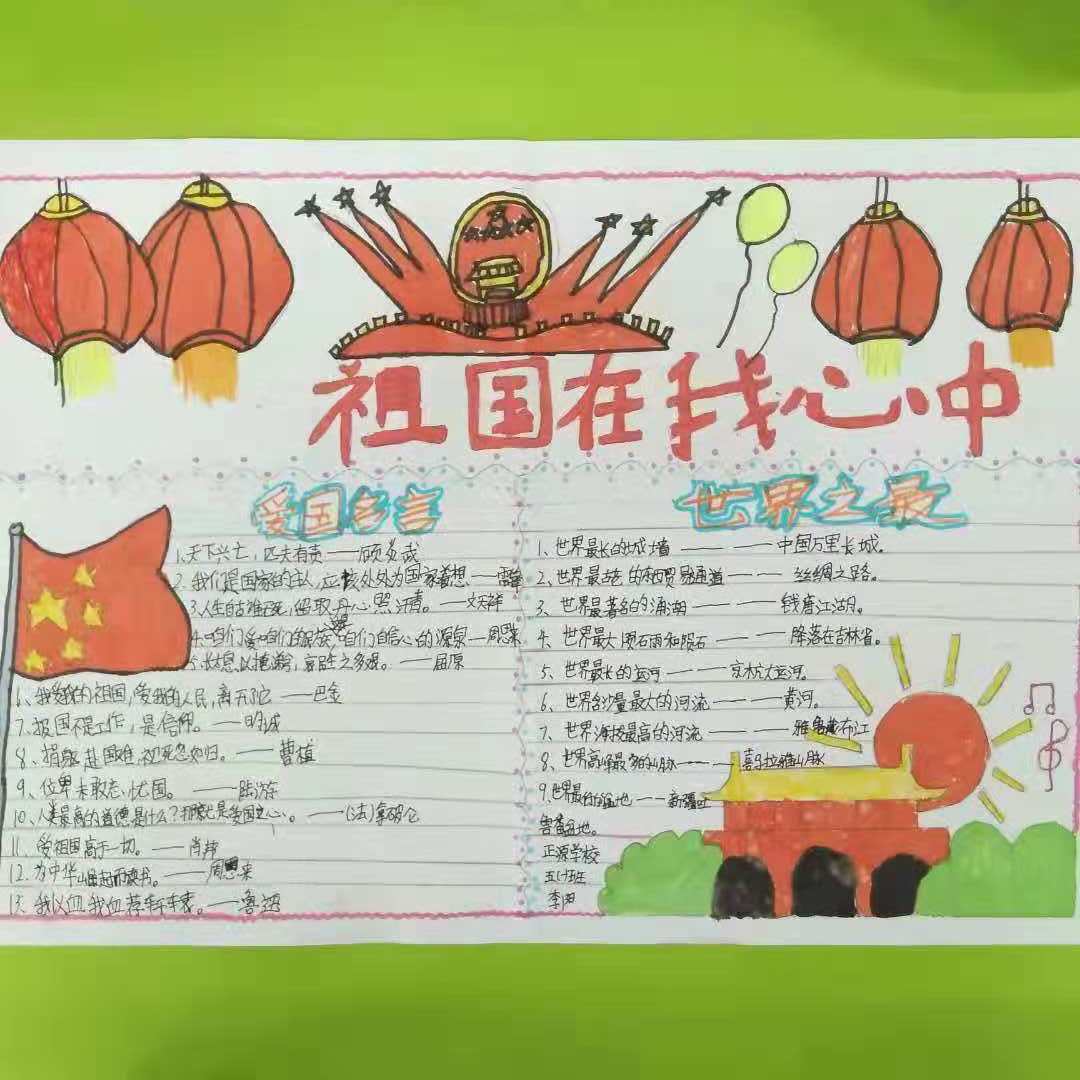 祖国在我心中
爱国名言
1、天下兴亡，匹夫有责——顾炎武
2、我们是国家的主人，应该处处为国家着想——雷锋
3、人生自古谁无死，留取丹心照汗青。——文天祥
4、咱们爱咱们的民族，咱们自信心的源泉—周恩来
5、长息以掩涕，哀民生之多艰。——屈原
6、我爱我的祖国，爱我的人民，离开它——巴金
7、报国不是工作，是信仰。——明诚
8、捐躯赴国难，视死忽如归。——曹植
9、位卑未敢忘忧国。——陆游
10、人类最高的道德是什么？那就是爱国之心。——（法）拿破仑
11、爱祖国高于一切。——肖邦
12、为中华崛起而读书。——周恩来
13、我以我血荐轩辕。——鲁迅
世界之最
1、世界最长的城墙———中国万里长城。
2、世界最古老的和贸易通道———丝绸之路。
3、世界最著名的涌潮———钱唐江湖。
4、世界最大陨石雨和陨石———降落在吉林省。
5、世界最长的运河———京杭大运河。
6、世界含沙量最大的河流———黄河。
7、世界海拔最高的河流———雅鲁藏布江
8、世界高峰最多的山脉——喜马拉雅山脉
9、世界最低的盆地——新疆吐
鲁番盆地。
正源学校
五
李